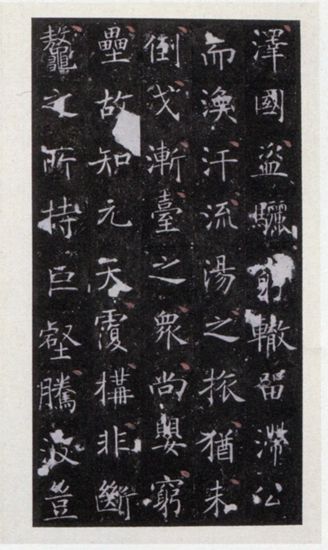 澤國盜驪轍留滯公
而渙汗流湯之旅猶未
倒戈漸臺之衆尚嬰窮
壘故知元天覆構非斷
鼇之所持巨壑騰波豈